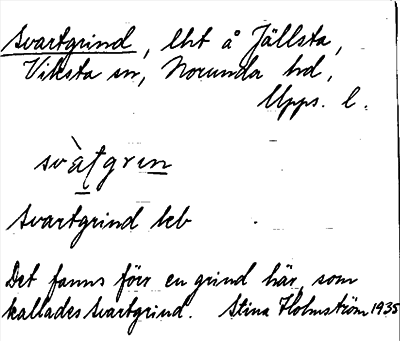 Svartgrind, lht å Jällsta,
Viksta sn, Norunda hd,
Upps. l.
svàʈgrin
Svartgrind teb
Det fanns förr en grind här, som
kallades Svartgrind. Stina Holmström 1935